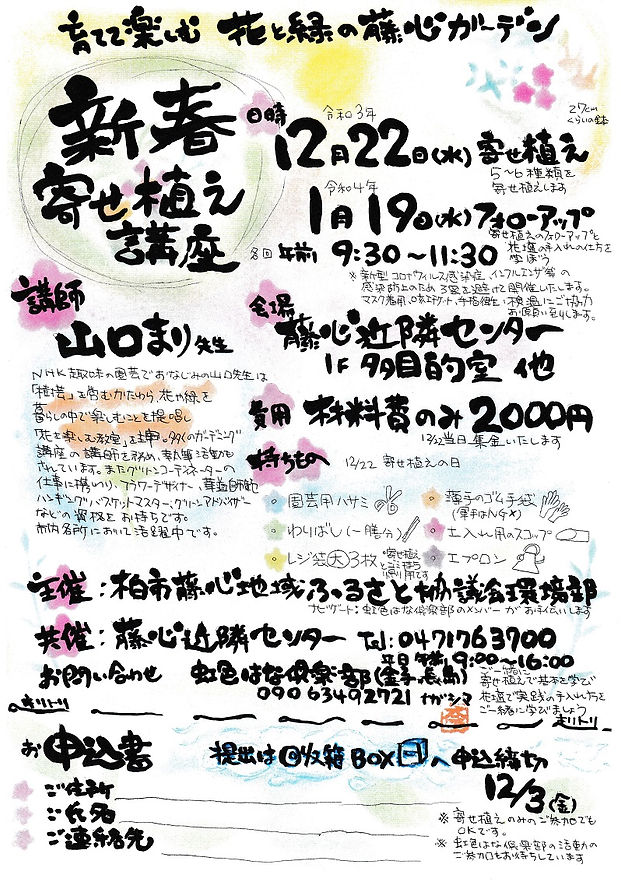 育てて楽しむ 花と緑の藤心ガーデン
新春
寄せ植え
講座
日時
令和3年
12月22日(水) 寄せ植え
27cm
くらいの鉢
5〜6種類を
寄せ植えします
令和4年
1月19日(水) フォローアップ
寄せ植えのフォローアップと
花壇の手入れの仕方を
学ぼう
各回 午前 9:30〜11:30
※新型コロナウィルス感染症、インフルエンザ等の
感染防止のため3密を避けて開催いたします。
マスク着用、手指衛生、検温にご協力
お願い致します。
講師
山口まり先生
NHK趣味の園芸でおなじみの山口先生は
を営むかたわら、花や緑を
暮らしの中で楽しむことを提唱
「花を楽しむ教室」を主宰。多くのガーデニング
講座の講師を務め、執筆活動も
されています。またグリーンコーディネーターの
仕事に携わり、フラワーデザイナー、
ハンギングバスケットマスター、グリーンアドバイザー
などの資格をお持ちです。
市内各所において活躍中です。
会場
藤心近隣センター
1F 多目的室 他
費用 材料費のみ 2000円
12/22当日集金いたします
持ちもの
12/22 寄せ植えの日
園芸用ハサミ
薄手のゴム手袋
(軍手はNG×)
わりばし(一膳分)
土入れ用のスコップ
レジ袋(大)3枚
寄せ植え
とゴミ持ち
帰り用です
エプロン
主催:柏市藤心地域ふるさと協議会環境部
ナビゲート:虹色はな倶楽部のメンバーがお手伝いします
共催:藤心近隣センター Tel:0471763700
平日 午前9:00〜16:00
お問い合わせ 虹色はな倶楽部(金子、長島)
090 6349 2721 ナガシマ
ご一緒に
寄せ植えで基本を学び
花壇で実践の手入れ方を
ご一緒に学びましょう
キリトリ
キリトリ
お申込書
提出は回収箱BOXへ 申込締切
12/3(金)
ご住所
ご氏名
ご連絡先
※寄せ植えのみのご参加でも
OKです。
※虹色はな倶楽部の活動の
ご参加もお待ちしています